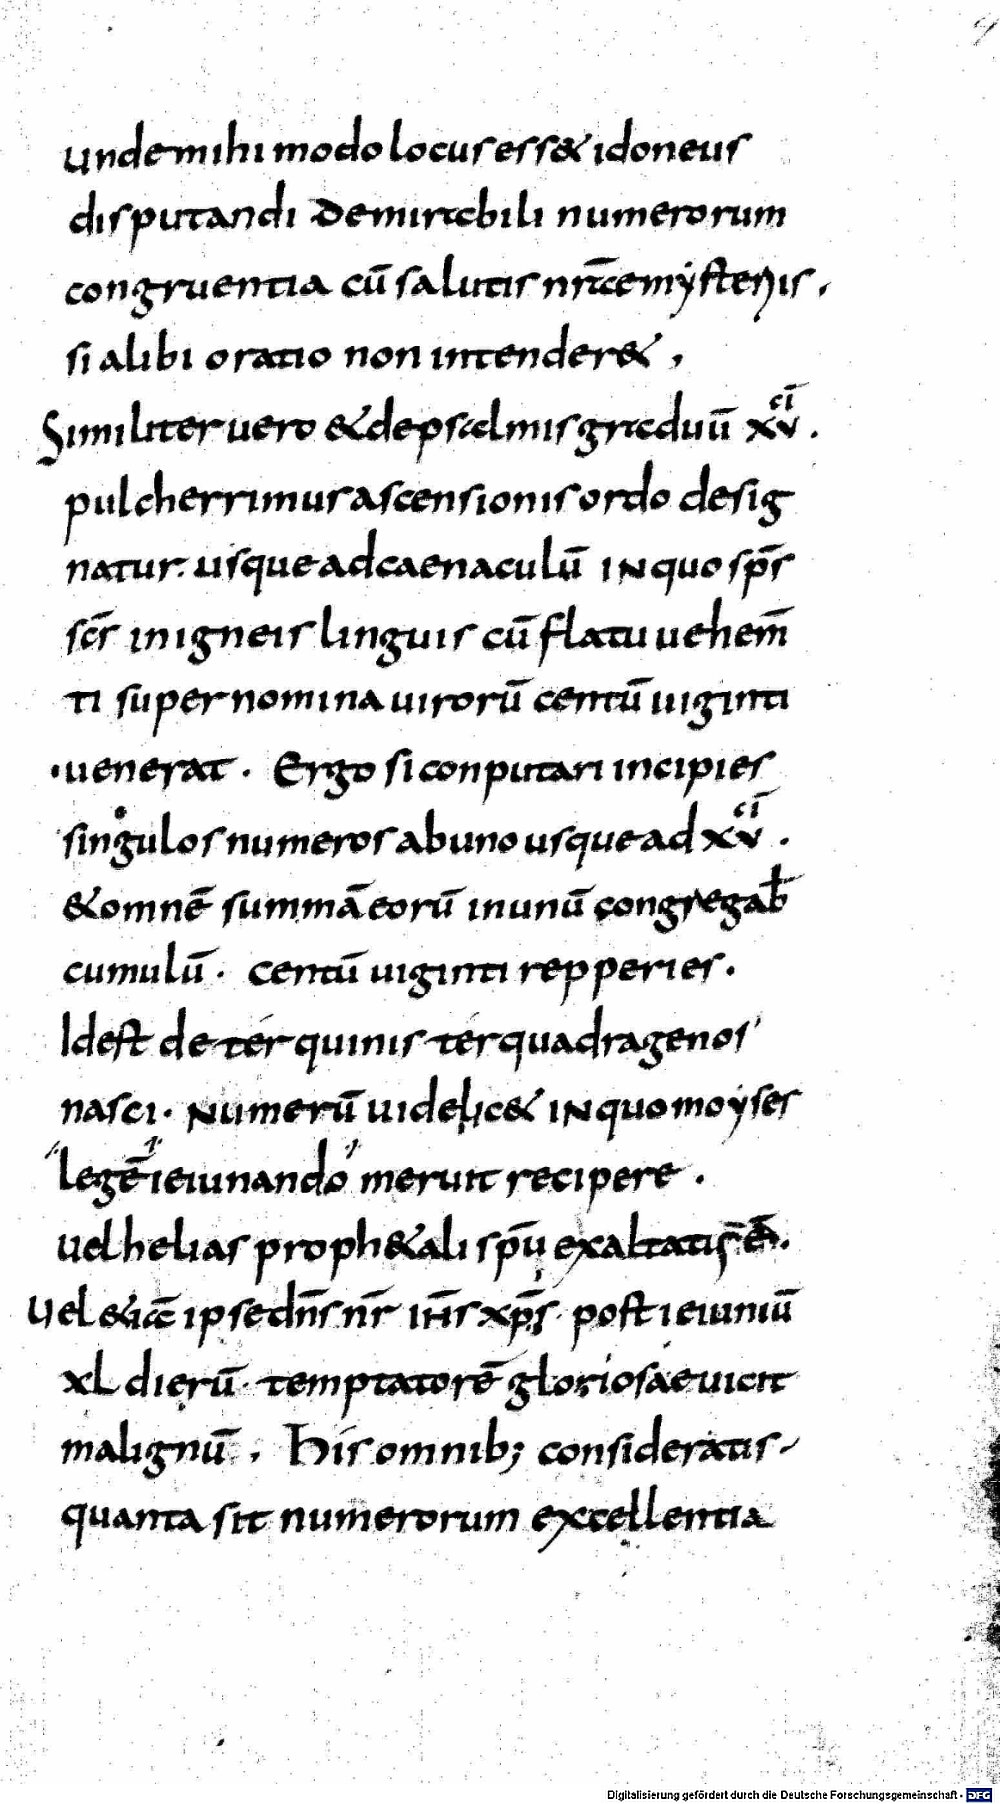 9
unde mihi modo locus ess& idoneus
disputandi de mirabili numerorum
congruentia cū salutis nr̄ae mẏsteriis .
si alibi oratio non intender& ,
Similiter uero & de psalmis graduū xv̄ci .
pulcherrimus ascensionis ordo desig
natur. usque ad caenaculū IN quo sp̄s
sc̄s in igneis linguis cū flatu uehem̄
ti super nomina uirorū centū uiginti
uenerat . Ergo si conputari incipies
singulos numeros ab uno usque ad xv̄ci .
& omnē summā eorū in unū congregab̄
cumulū . Centū uiginti repperies .
Idest de tér quinis tér quadragenos
nasci . Numerū uidelic& IN quo moẏses
legē ieiunando meruit recipere .
uel helias proph&ali sp̄u exaltatus ē .
Uel &iā ipse dn̄s nr̄ ih̄s xp̄s . post ieiuniū
xl dierū . temptatorē gloriosae uicit
malignū . His omnib; consideratis
quanta sit numerorum excellentia
Digitalisierung gefördert durch die Deutsche Forschungsgemeinschaft - DFG